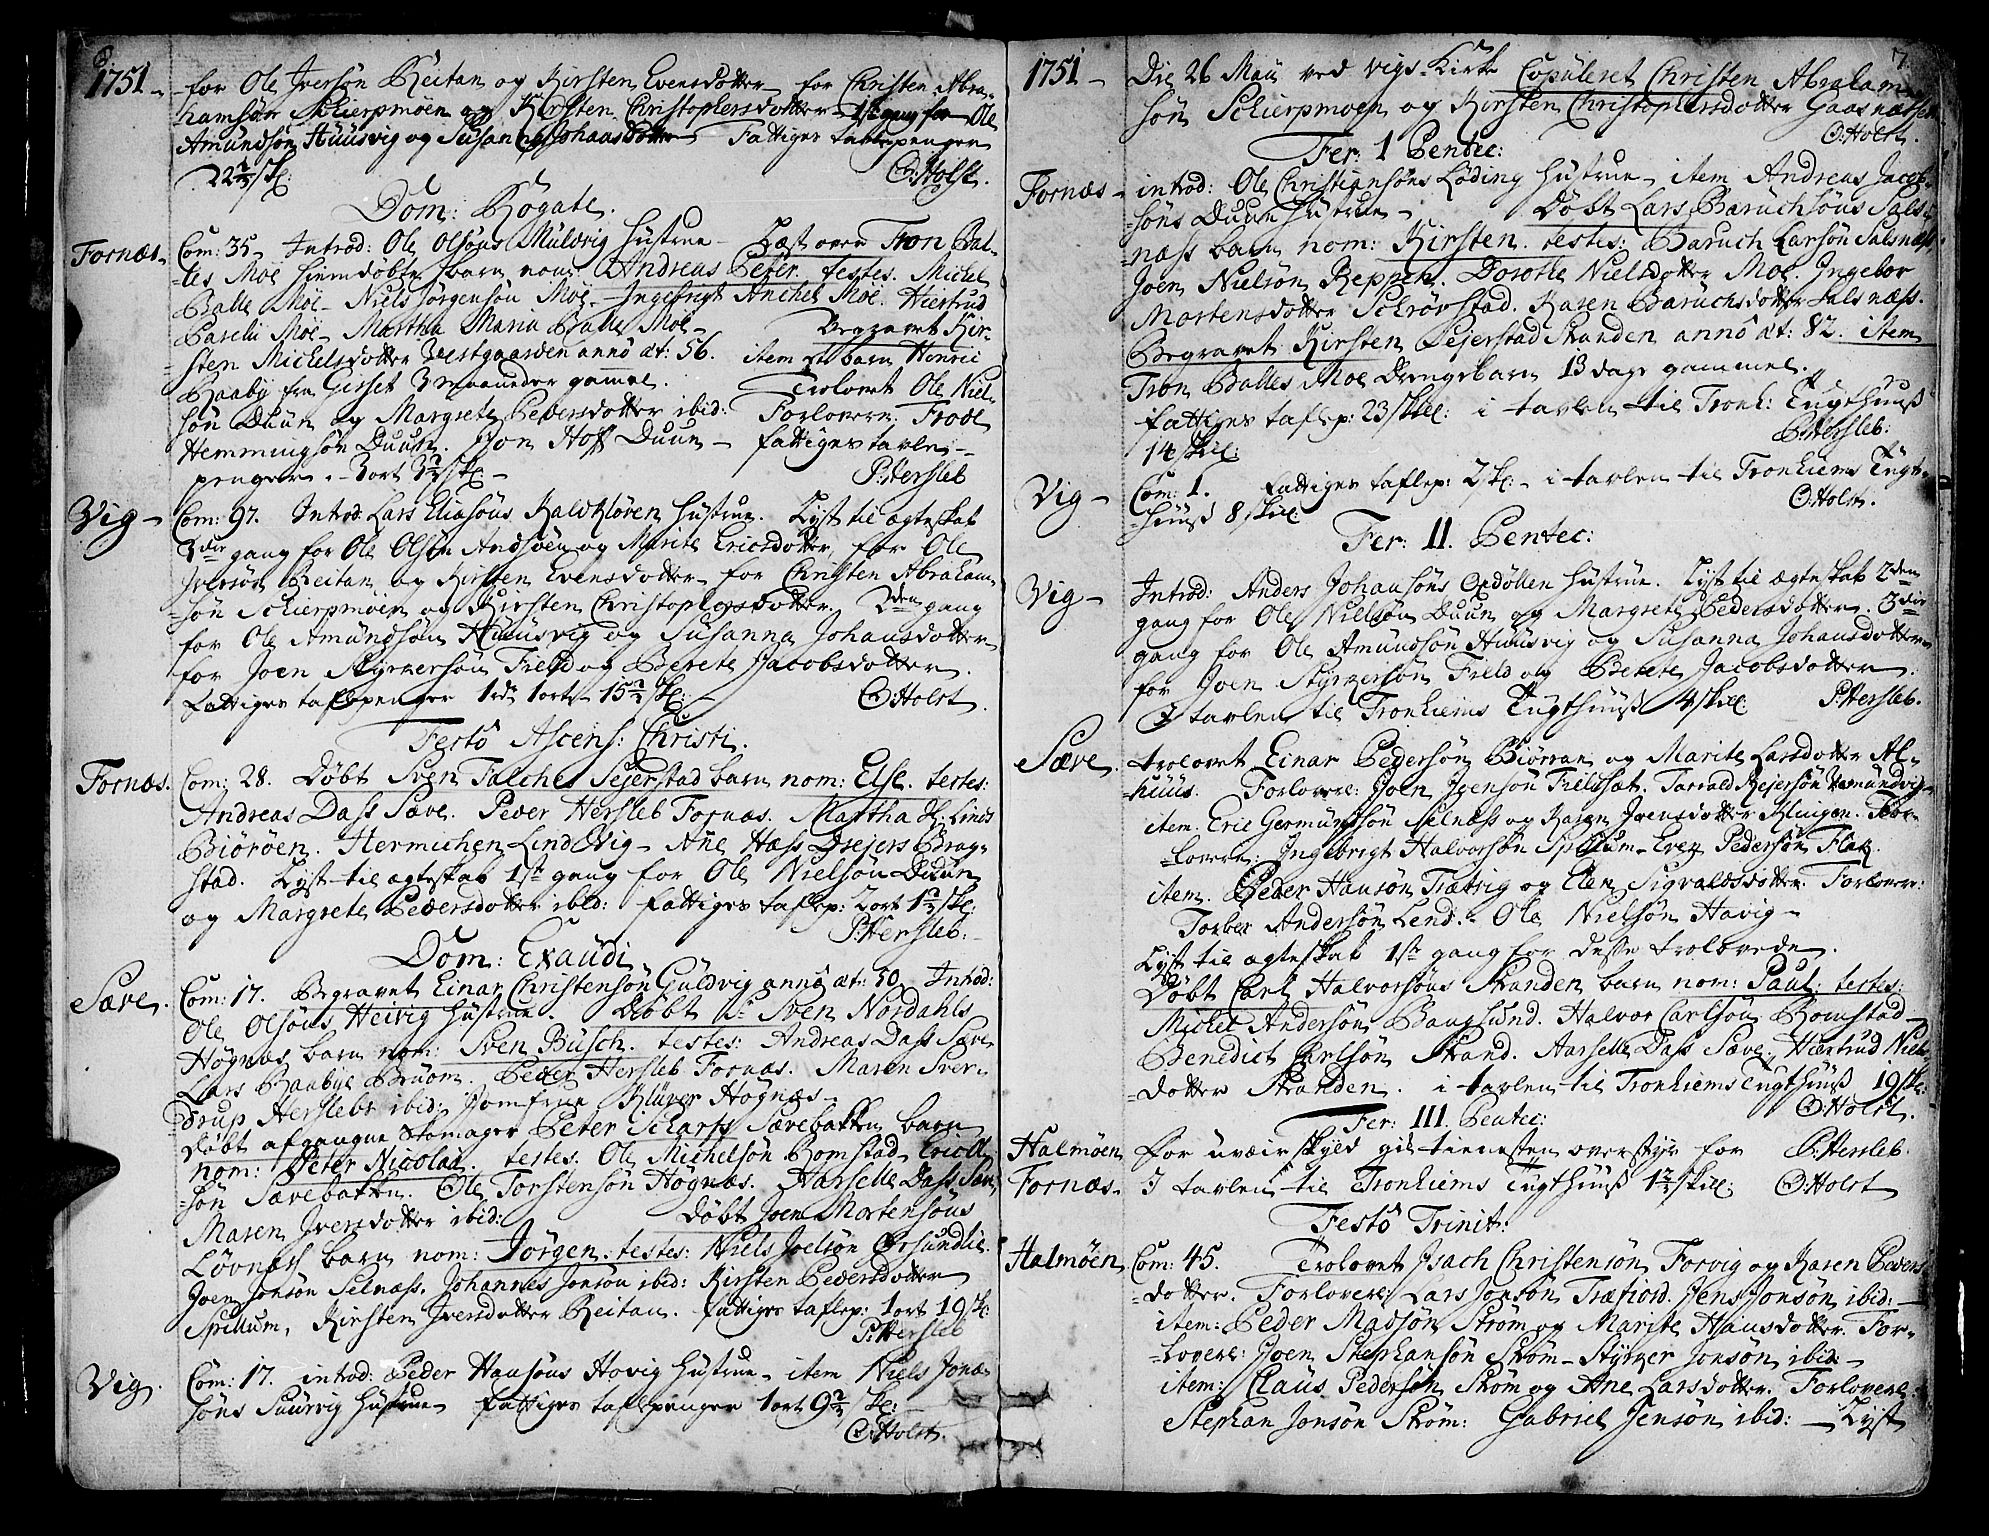 6.
1751 - for Ole Iversøn Reitan og Kirsten Evensdotter - for Christen Abra-
hamsøn Schierpmoen og Kirsten Christophersdotter - 1ste gang for Ole
Amundsøn Huusvig og Susanna Johansdotter Fattiges tavlepenger
22½ sk: O: Holst.
Dom: Rogate.
Fornæs - Com: 35 - Introd: Ole Olsøns Mulvig hustrue - Læst over Tron Bal-
les Moe hiemdøbte barn nom: Andreas Peter. testes. Michel
Balle Moe - Niels Jørgensøn Moe - Ingefrigt Anchel Moe. Hiertrud
Paseli Moe - Martha Maria Balle Moe - Begravet Kir-
sten Michelsdotter Vestgaarden anno æt: 56. item et barn Henric
Raaby fra Gisset 3 maaneder gammel. Trolovet Ole Niel-
søn Duun og Margrete Pedersdotter ibid: Forlovere: Frode
Hemmingsøn Duun. Jon Hoff Duun - fattiges tavle-
penger. - 3 ort 3½ sk - P: Hersleb
Vig - Com: 97. Introd: Lars Eliasøns Kalvkløven hustrue. Lyst til ægteskab
3die gang for Ole Olsøn Andsøen og Marite Ericsdotter, for Ole
Iversøn Reitan og Kirsten Evensdotter - for Christen Abraham-
søn Schierpmoen og Kirsten Christophersdotter. 2den gang
for Ole Amundsøn Huusvig og Susanna Johansdotter
for Joen Styrkersøn Field og Berete Jacobsdotter.
Fattiges taflepenger 1 rd. 1 ort - 15½ sk: O: Holst.
Festo Ascens: Christi.
Fornæs. Com: 28. Døbt Sven Falches Sejerstad barn nom: Else. testes:
Andreas Dass Sæve. Peder Hersleb Fornæs. Martha Sl: Linds
Biørøen. Hermichen Lind Vig - Ane Hass Drejers Brag-
stad. Lyst til ægteskab 1ste gang for Ole Nielsøn Duun
og Margrete Pedersdotter ibid: fattiges taflep: 2 ort 1½ sk:
P: Hersleb:
Dom: Exaudi
Sæve. Com: 17. Begravet Einar Christensøn Guldvig anno æt: 50. Introd:
Ole Olsøns Heivig hustrue. Døbt Sr Sven Nordahls
Høgnæs barn nom: Sven Busch. testes: Andreas Dass Sæve
Lars Raabye Bruom. Peder Hersleb Fornæs. Maren Sver-
drup Herslebs ibid: Jomfrue Klüver Høgnæs -
Døbt afgangne skomager Peter Scharfs Sævebakken barn
nom: Peter Nicolai. testes: Ole Michelsøn Romstad Eric Ol-
søn Sævebakken. Ole Torstensøn Høgnæs. Aarselle Dass Sæve
Maren Iversdotter ibid: Døbt Joen Mortensøns
Løvnæs barn nom: Jørgen. testes: Niels Joelsøn Gørsundlie.
Joen Jonsøn Selnæss. Johannes Jonsøn ibid: Kirsten Pedersdotter
Spillum, Kirsten Iversdotter Reitan. fattiges taflep: 1 ort 19 sk:
P: Hersleb
Vig. Com: 17. introd: Peder Hansøns Hovig hustrue - item Niels Jona-
søns Suurvig hustrue fattiges taflepenger 1 ort 9½ sk: -
O: Holst.
7.
1751 - Die 26 Maii ved Vigs-Kirke Copuleret Christen Abraham-
søn Schierpmoen og Kirsten Christophersdotter Gaasnæsset.
O: Holst.
Fer: 1 Pentec:
Fornæs - introd: Ole Christiansøns Løding hustrue - item Andreas Jacob-
søns Duun hustrue - Døbt Lars Baruchsøns Sals-
næss barn nom: Kirsten. testes: Baruch Larsøn Salsnæss
Joen Nielsøn Reppen. Dorothe Nielsdotter Moe. Ingebor
Mortensdotter Schrøvstad. Karen Baruchsdotter Salsnæss.
Begravet Kirsten Sejerstad Stranden anno æt: 82. item
Tron Balles Moe Drengebarn 13 dage gammel.
fattiges taflep: 23 skil: i tavlen til Tronh: Tugthuuss
14 skil: P: Hersleb:
Vig - Com: 1. Fattiges taflep: 2 sk: - i tavlen til Tronhiems Tugt-
huuss 8 skil: O: Holst.
Fer: II. Pentec:
Vig - Introd: Anders Johansøns Oxdøllen hustrue. Lyst til ægteskab 2den
gang for Ole Nielsøn Duun og Margrete Pedersdotter. 3die
gang for Ole Amundsøn Huusvig og Susanna Johansdotter
for Joen Styrkersøn Field og Berete Jacobsdotter.
I tavlen til Tronhiems Tugthuuss 4 skil: P: Hersleb.
Sæve. trolovet Einar Pedersøn Biørran og Marite Larsdotter Al-
huus. Forlovere: Joen Joensøn Fieldsæt. Tarrald Rejersøn Homundvig
item. Eric Germundsøn Selnæss og Karen Joensdotter Klingen. For-
lovere: Ingebrigt Halvorsøn Spillum - Even Pedersøn Flak.
item. Peder Hansøn Trætvig og Elen Sigvaldsdotter. Forlovere:
Torber Andersøn Lend. - Ole Nielsøn Havig -
Lyst til ægteskab 1ste gang for disse trolovede.
Døbt Carl Halvorsøns Stranden barn nom: Paul: testes:
Michel Andersøn Bangsund. Halvor Carlsøn Romstad -
Benedict Carlsøn Strand. Aarselle Dass Sæve. Hiertrud Niels-
dotter Stranden. i tavlen til Tronhiems Tugthuuss 19 sk:
O: Holst.
Fer: III. Pentec:
Halmøen For uvæir skyld gik tienesten overstyr for P: Hersleb.
Fornæs. I tavlen til Tronhiems Tugthuuss 1½ skil: O: Holst
Festo Trinit:
Halmøen Com: 45. Trolovet Isach Christensøn Forvig og Karen Peders-
dotter. Forlovere: Lars Jonsøn Træfiord. Jens Jonsøn ibid: -
item: Peder Madsøn Strøm og Marite Hansdotter. For-
lovere: Joen Stephansøn Strøm - Styrker Jonsøn ibid: -
item: Claus Pedersøn Strøm og Ane Larsdotter. Forlovere:
Stephan Jonsøn Strøm: Gabriel Jensøn ibid: - Lyst